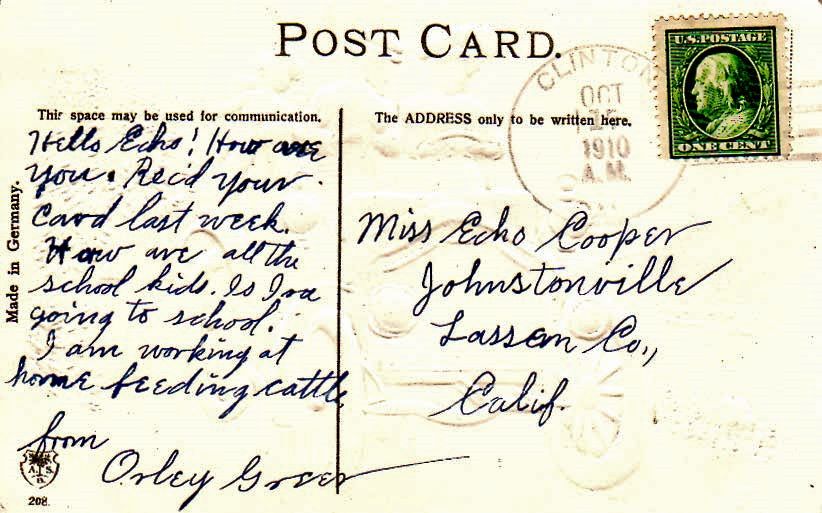 POST CARD.
CLINTON
OCT
1910
A.M.
U.S. POSTAGE
ONE CENT
This space may be used for communication.
The ADDRESS only to be written here.
Made in Germany.
Hello Echo! How are
you. Recd your
card last week.
How are all the
school kids. Is Ira
going to school.
I am working at
home feeding cattle
from
Orley Greer
Miss Echo Cooper
Johnstonville
Lassen Co.,
Calif.
A. S.
B.
208.